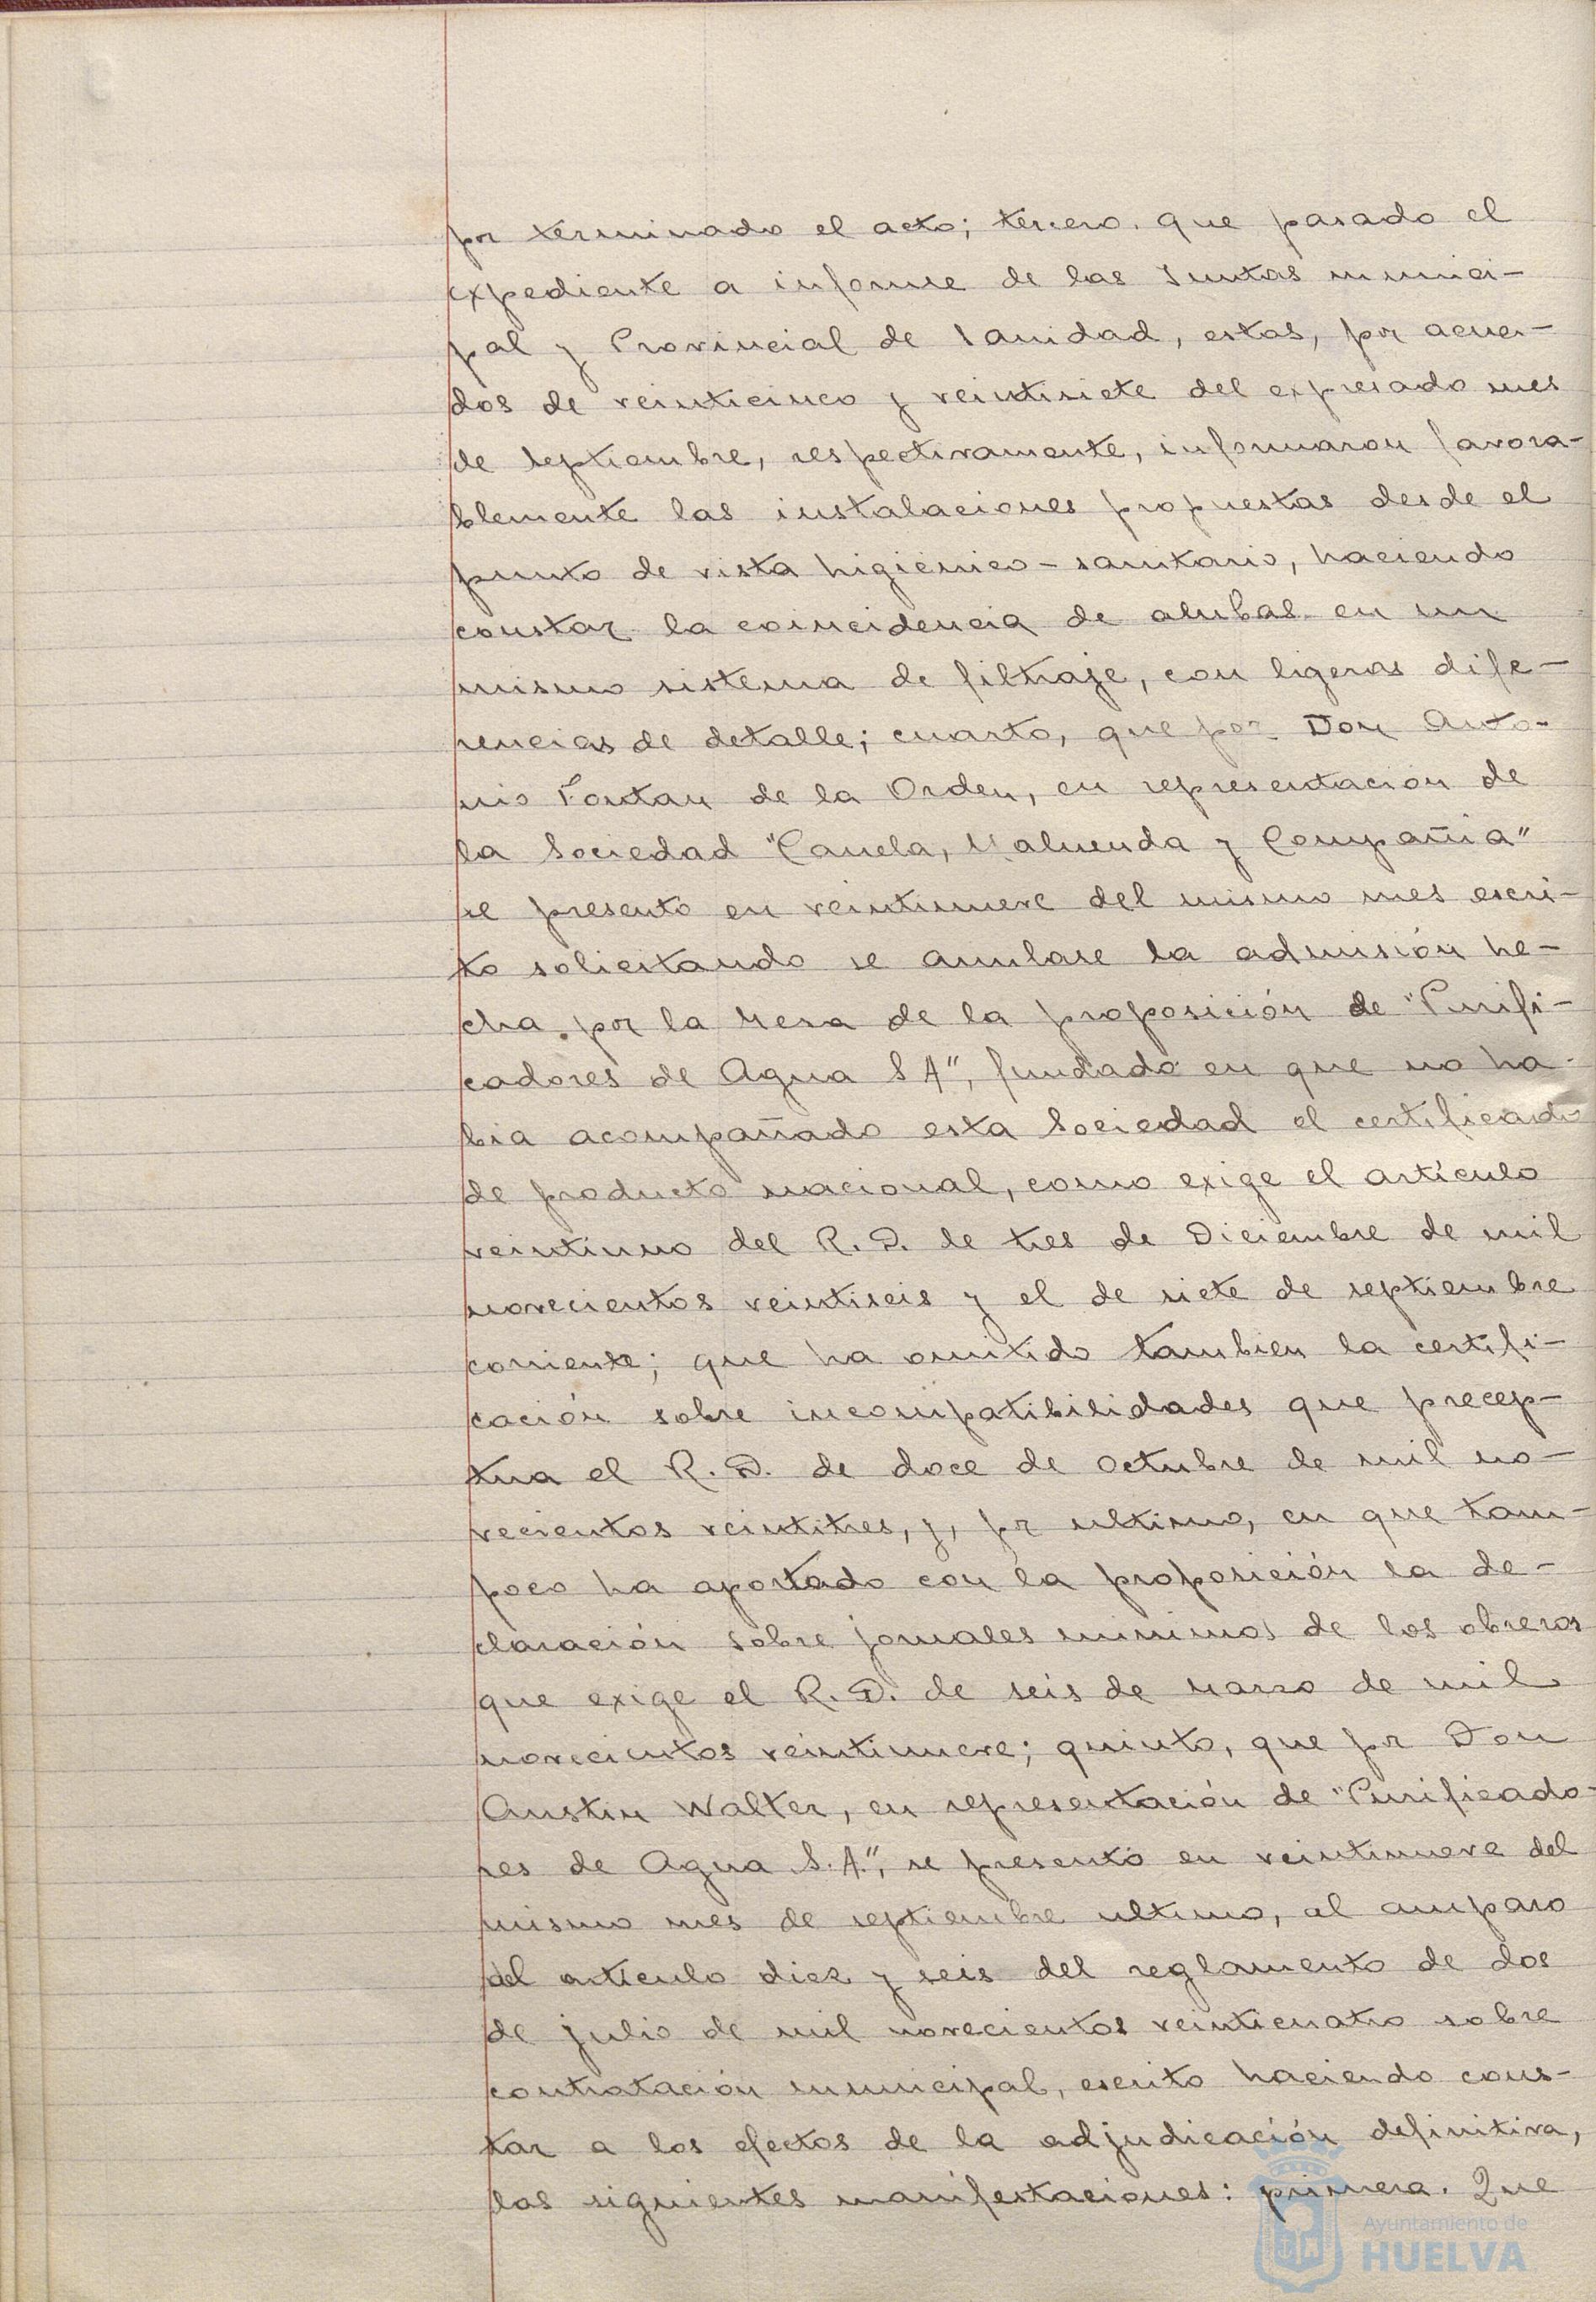 por terminado el acto; tercero. que pasado el
expediente a informe de las Juntas munici-
pal y Provincial de Sanidad, estas, por acuer-
dos de veinticinco y veintisiete del expresado mes
de septiembre, respectivamente, informaron favora-
blemente las instalaciones propuestas desde el
punto de vista higiénico-sanitario, haciendo
constar la coincidencia de ambas en un
mismo sistema de filtraje, con ligeras dife-
rencias de detalle; cuarto, que por Don Anto-
nio Fontan de la Orden, en representación de
la Sociedad "Canela, Maluenda y Compañia"
se presento en veintinueve del mismo mes escri-
to solicitando se anulase la admisión he-
cha por la Mesa de la proposición de "Purifi-
cadores de Agua S A", fundado en que no ha-
bia acompañado esta Sociedad el certificado
de producto nacional, como exige el artículo
veintiuno del R. D. de tres de Diciembre de mil
novecientos veintiseis y el de siete de septiembre
corriente; que ha omitido tambien la certifi-
cación sobre incompatibilidades que precep-
tua el R. D. de doce de Octubre de mil no-
vecientos veintitres, y, por ultimo, en que tam-
poco ha aportado con la proposición la de-
claración sobre jornales minimos de los obreros
que exige el R. D. de seis de Marzo de mil
novecientos veintinueve; quinto, que por Don
Austin Walter, en representación de "Purificado-
res de Agua S. A.", se presentó en veintinueve del
mismo mes de septiembre ultimo, al amparo
del artículo diez y seis del reglamento de dos
de julio de mil novecientos veinticuatro sobre
contratación municipal, escrito haciendo cons-
tar a los efectos de la adjudicación definitiva,
las siguientes manifestaciones: primera. Que
Ayuntamiento de
HUELVA